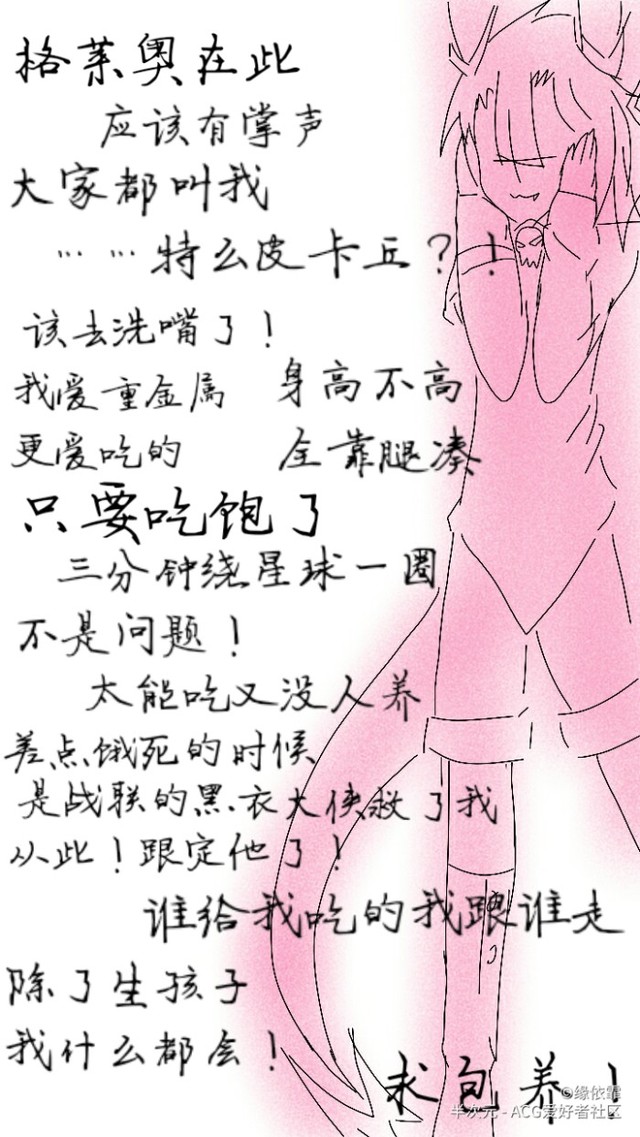 格莱奥在此
应该有掌声
大家都叫我
……特么皮卡丘？！
该去洗嘴了！
我爱重金属
更爱吃的
身高不高
全靠腿凑
只要吃饱了
三分钟绕星球一圈
不是问题！
太能吃又没人养
差点饿死的时候
是战联的黑衣大侠救了我
从此！跟定他了！
谁给我吃的我跟谁走
除了生孩子
我什么都会！
求包养！
©缘依霏
半次元 - ACG爱好者社区